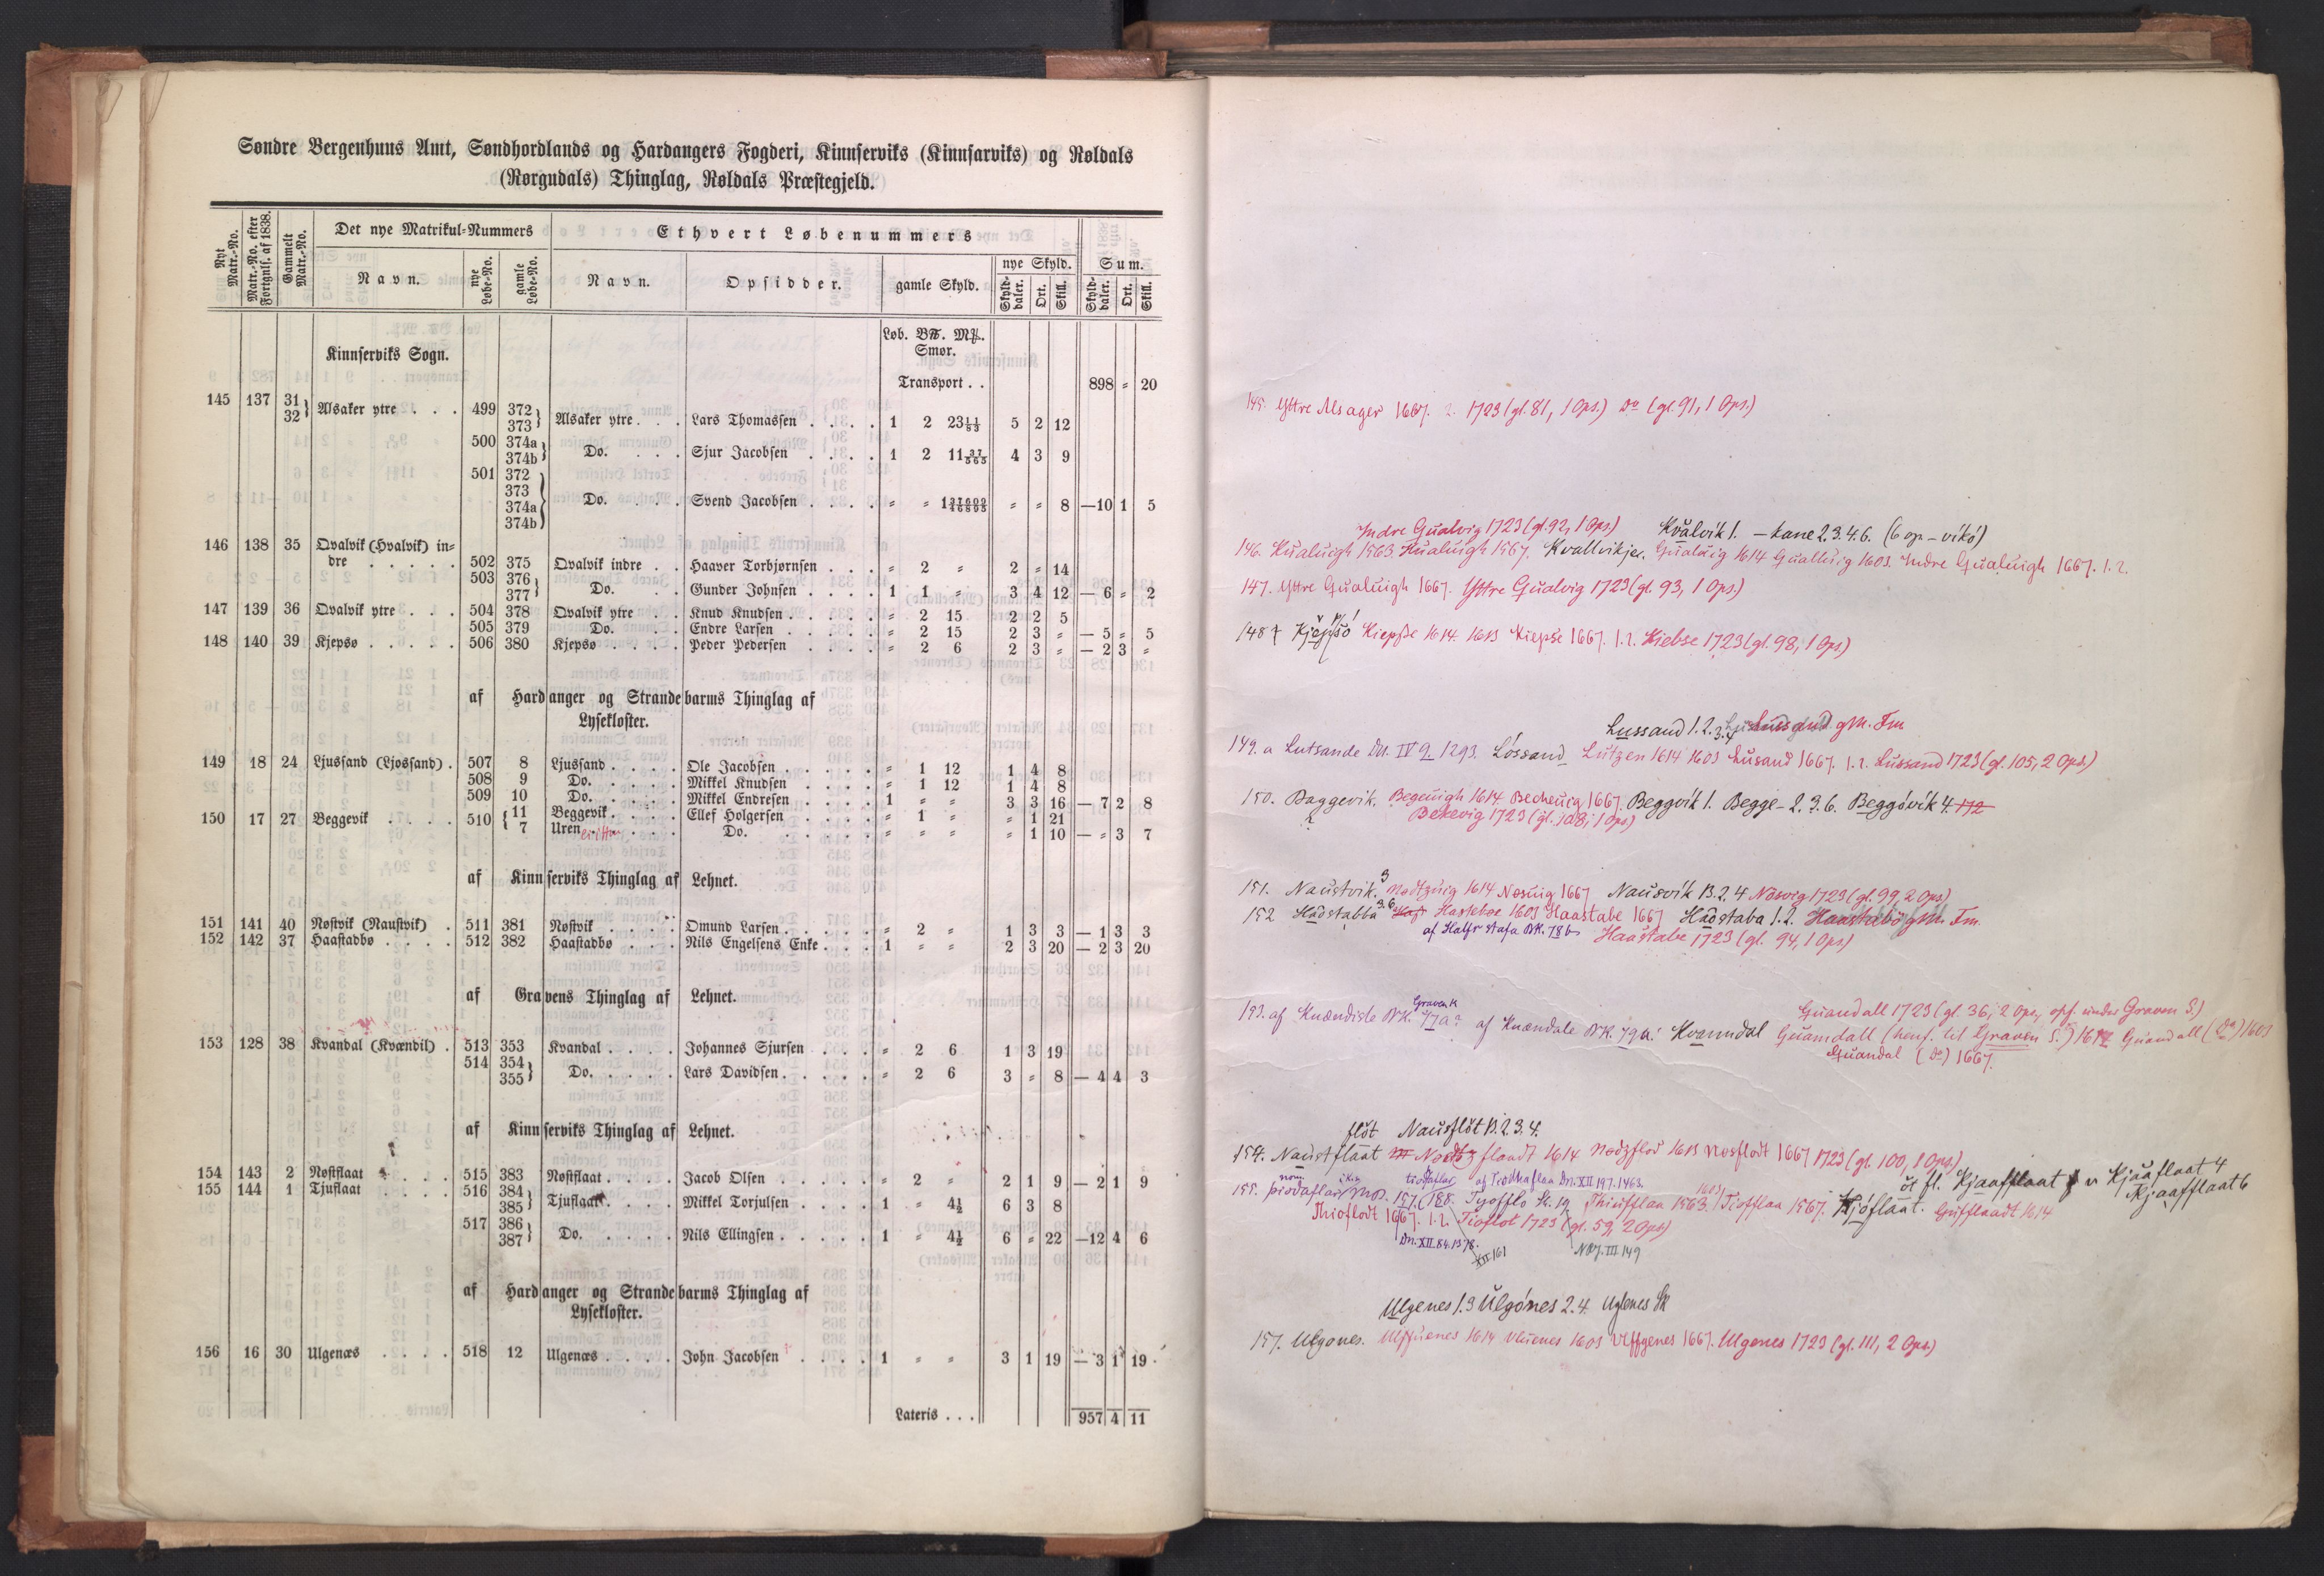 Søndre Bergenhuus Amt, Søndhordlands og Hardangers Fogderi, Kinnserviks (Kinnsarviks) og Røldals
(Rørgudals) Thinglag, Røldals Præstegjeld.
Nyt Matr.-No. Matr.-No. efter Fortgnls. af 1838. Gammelt Matr.-No. Det nye Matrikul-Nummers Ethvert Løbenummers
Navn. nye Løbe-No. gamle Løbe-No. Navn. Opsidder. gamle Skyld. nye Skyld. Skylddaler. Ort. Skill. Sum. Skylddaler. Ort. Skill.
Kinnserviks Sogn. Løb. B℔. M℔.
Smør.
Transport . . 898 " 20
145 137 31 32 Alsaker ytre . . . 499 372 373 Alsaker ytre . . . Lars Thomassen . . . . 1 2 23 11/53 5 2 12
500 374a 374b Do. . . . Sjur Jacobsen . . . . 1 2 11 37/565 4 3 9
501 372 373 374a 374b Do. . . . . Svend Jacobsen . . . . " " 1 " " 8 —10 1 5
146 138 35 Qvalvik (Hvalvik) in-
dre . . . . . 502 375 Qvalvik indre . . Haaver Torbjørnsen . . . " 2 " 2 " 14
503 376 377 Do. . . Gunder Johnsen . . . . 1 1 " 3 4 12 — 6 " 2
147 139 36 Qvalvik ytre . . . 504 378 Qvalvik ytre . . Knud Knudsen . . . . . " 2 15 2 2 5
505 379 Do. . . Endre Larsen . . . . . " 2 15 2 3 " — 5 " 5
148 140 39 Kjepsø . . . . . 506 380 Kjepsø . . . . Peder Pedersen . . . . " 2 6 2 3 " — 2 3 "
af Hardanger og Strandebarms Thinglag af
Lysekloster.
149 18 24 Ljussand (Ljossand) . 507 8 Ljussand . . . . Ole Jacobsen . . . . . " 1 12 1 4 8
508 9 Do. . . . . Mikkel Knudsen . . . . " 1 12 1 4 8
509 10 Do. . . . . Mikkel Endresen . . . . 1 " " 3 3 16 — 7 2 8
150 17 27 Beggevik . . . . 510 11 Beggevik . . . . Ellef Holgersen . . . . " 1 " " 1 21
7 Uren . . . . . Do. . . . . . " " " " 1 10 — " 3 7
af Kinnserviks Thinglag af Lehnet.
151 141 40 Nøstvik (Naustvik) . 511 381 Nøstvik . . . . Omund Larsen . . . . . " 2 " 1 3 3 — 1 3 3
152 142 37 Haastadbø . . . . 512 382 Haastadbø . . . Nils Engelsens Enke . . . 1 " " 2 3 20 — 2 3 20
af Gravens Thinglag af Lehnet.
153 128 38 Kvandal (Kvændil) . 513 353 Kvandal . . . . Johannes Sjursen . . . " 2 6 1 3 19
514 354 355 Do. . . . . Lars Davidsen . . . . . " 2 6 3 " 8 — 4 4 3
af Kinnserviks Thinglag af Lehnet.
154 143 2 Nøstflaat . . . . 515 383 Nøstflaat . . . . Jacob Olsen . . . . . " 2 " 2 1 9 — 2 1 9
155 144 1 Tjuflaat . . . . 516 384 385 Tjuflaat . . . . Mikkel Torjulsen . . . . 1 " 4½ 6 3 8
517 386 387 Do. . . . . Nils Ellingsen . . . . . 1 " 4½ 6 " 22 —12 4 6
af Hardanger og Strandebarms Thinglag af
Lysekloster.
156 16 30 Ulgenæs . . . . 518 12 Ulgenæs . . . . John Jacobsen . . . . 1 " " 3 1 19 — 3 1 19
Lateris . . . 957 4 11
145. Yttre Alsager 1667. 2. 1723 (gl. 81, 1 Ops.) Do (gl. 91, 1 Ops.)
Indre Gualvig 1723 (gl. 92, 1 Ops.) Kvålvik 1. – tane 2.3.4.6. (6 op – vikó)
146. Hualuigh 1563. Hualuigh 1567. Kvallvikjer. Gualuig 1614 Gualluig 1603. Indre Gualuigh 1667. 1.2.
147. Yttre Gualuigh 1667. Yttre Gualvig 1723 (gl. 93, 1 Ops.)
148 Kjepsó Kiepsse 1614 1603 Kiepse 1667. 1.2. Kiebse 1723 (gl. 98, 1 Ops.)
Lussand 1.2.3.4 Lussand gM. Fm
149. a Lutsande Dn. IV 9 1293. Lóssand Lutzen 1614 1603 Lusand 1667. 1.2. Lussand 1723 (gl. 105, 2 Ops.)
150. Baggevik. Begeuigh 1614 Becheuig 1667. Beggvik 1. Begge- 2.3.6. Beggóvik 4.
Bekevig 1723 (gl. 108, 1 Ops.)
151. Naustvik. Nødtzuig 1614 Nøsuig 1667 Nausvik B.2.4 Nøsvig 1723 (gl. 99, 2 Ops.)
152 Hådstabba Haskeboe 1603 Haastabe 1667 Hådstaba 1.2. Haastabø gM. Fm.
af Halfs stafa BK. 78b Haastabe 1723 (gl. 94, 1 Ops.)
Guandall 1723 (gl. 36, 2 Ops, opf. under Graven S.)
153. af Knændiste BK. 77a? Graven K af Knændale BK. 79a. Kvanndal Guamdall (henf. til Graven S.) 1614 Guandall (Do) 1603
Guandal (Do) 1667.
flót Nausflót B.2.3.4.
154. Naustflaat Nødtz flaadt 1614 Nødzflod 1603 Nosflodt 1667 1723 (gl. 100, 1 Ops.)
tiodaflar af Tiodhaflaa Dn. XII 197. 1463. Kjaafflaat Kjåaflaat 4
155. þiodaflar 157. 188. Tyofflo St. 19 Thiufflaa 1563. 1603 Tiofflaa 1567. Kjóflaat. Gufflaadt 1614 Kjaafflaat 6
Thioflodt 1667. 1.2. Tioflot 1723 (gl. 59, 2 Ops)
Dn. XII. 84. 1378. XII 161 NRJ. III 149
Ulgenes 1.3 Ulgónes 2.4. Uglenes Sk
157. Ulgones. Ulffuenes 1614 Vluenes 1603 Ulffgenes 1667. Ulgenes 1723 (gl. 111, 2 Ops.)